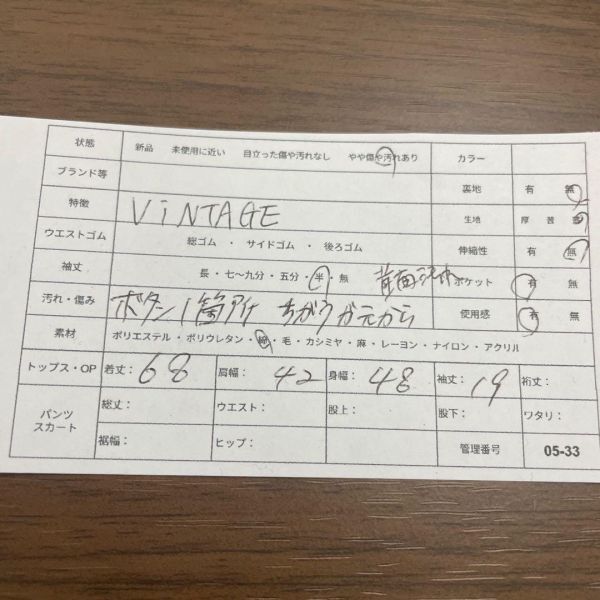 状態 新品 未使用に近い 目立った傷や汚れなし やや傷や汚れあり カラー
ブランド等 裏地 有 無
特徴 ViNTAGE 生地 厚 普
ウエストゴム 総ゴム ・ サイドゴム ・ 後ろゴム 伸縮性 有 無
袖丈 長・七〜九分・五分・半・無 前面 ポケット 有 無
汚れ・傷み ボタン1箇所 ちがうが元から 使用感 有 無
素材 ポリエステル・ポリウレタン・綿・毛・カシミヤ・麻・レーヨン・ナイロン・アクリル
トップス・OP 着丈: 68 肩幅: 42 身幅: 48 袖丈: 19 裄丈:
パンツ スカート 総丈: ウエスト: 股上: 股下: ワタリ:
裾幅: ヒップ: 管理番号 05-33